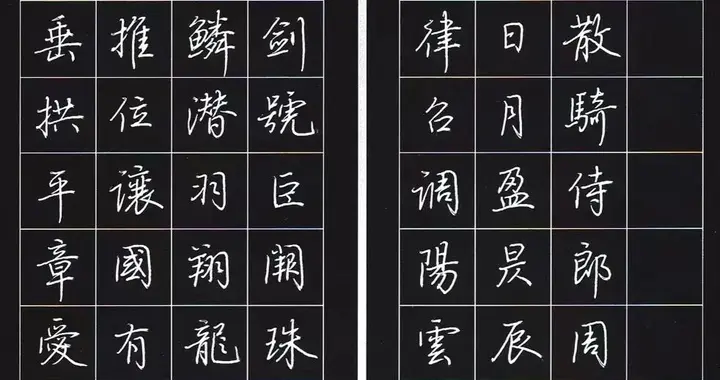 散騎侍郎周
日月盈昃辰
律吕调陽雲
剑號巨闕珠
鱗潜羽翔龍
推位讓國有
垂拱平章愛